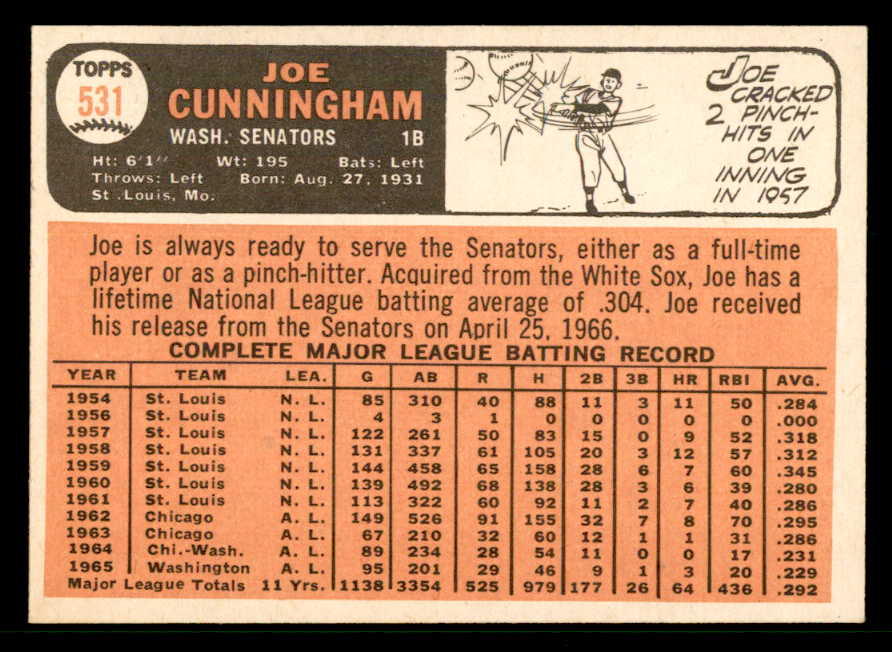 TOPPS
531
JOE
CUNNINGHAM
WASH. SENATORS 1B
Ht: 6'1" Wt: 195 Bats: Left
Throws: Left Born: Aug. 27, 1931
St. Louis, Mo.
JOE
CRACKED
2 PINCH-
HITS IN
ONE
INNING
IN 1957
Joe is always ready to serve the Senators, either as a full-time
player or as a pinch-hitter. Acquired from the White Sox, Joe has a
lifetime National League batting average of .304. Joe received
his release from the Senators on April 25, 1966.
COMPLETE MAJOR LEAGUE BATTING RECORD
YEAR TEAM LEA. G AB R H 2B 3B HR RBI AVG.
1954 St. Louis N. L. 85 310 40 88 11 3 11 50 .284
1956 St. Louis N. L. 4 3 1 0 0 0 0 0 .000
1957 St. Louis N. L. 122 261 50 83 15 0 9 52 .318
1958 St. Louis N. L. 131 337 61 105 20 3 12 57 .312
1959 St. Louis N. L. 144 458 65 158 28 6 7 60 .345
1960 St. Louis N. L. 139 492 68 138 28 3 6 39 .280
1961 St. Louis N. L. 113 322 60 92 11 2 7 40 .286
1962 Chicago A. L. 149 526 91 155 32 7 8 70 .295
1963 Chicago A. L. 67 210 32 60 12 1 1 31 .286
1964 Chi.-Wash. A. L. 89 234 28 54 11 0 0 17 .231
1965 Washington A. L. 95 201 29 46 9 1 3 20 .229
Major League Totals 11 Yrs. 1138 3354 525 979 177 26 64 436 .292